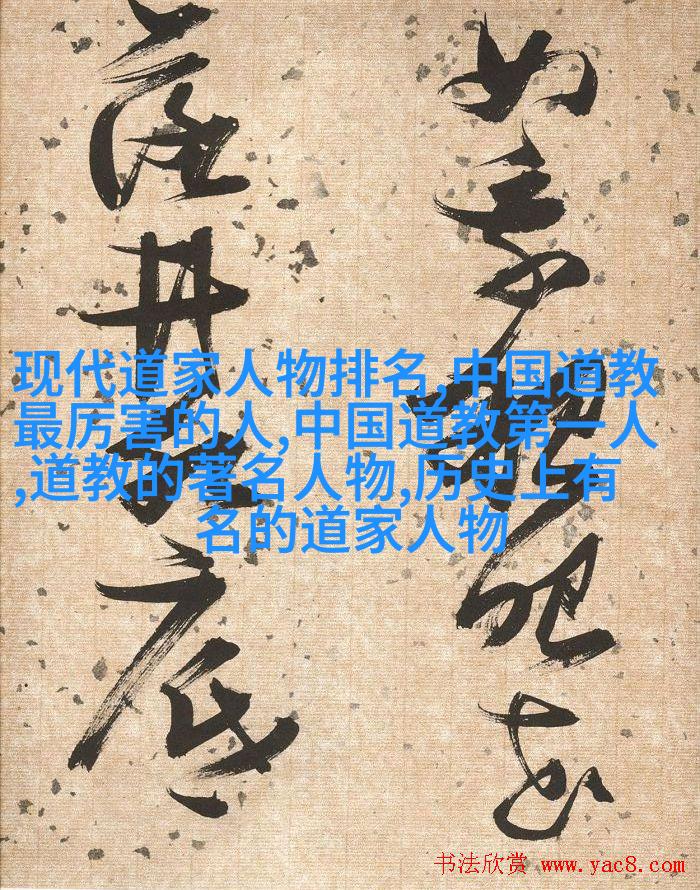 如乘船眼花
落井水底
现代道家人物排名,中国道教
最厉害的人,中国道教第一人
,道教的著名人物,历史上有
名的道家人物
书法欣赏 www.yac8.com